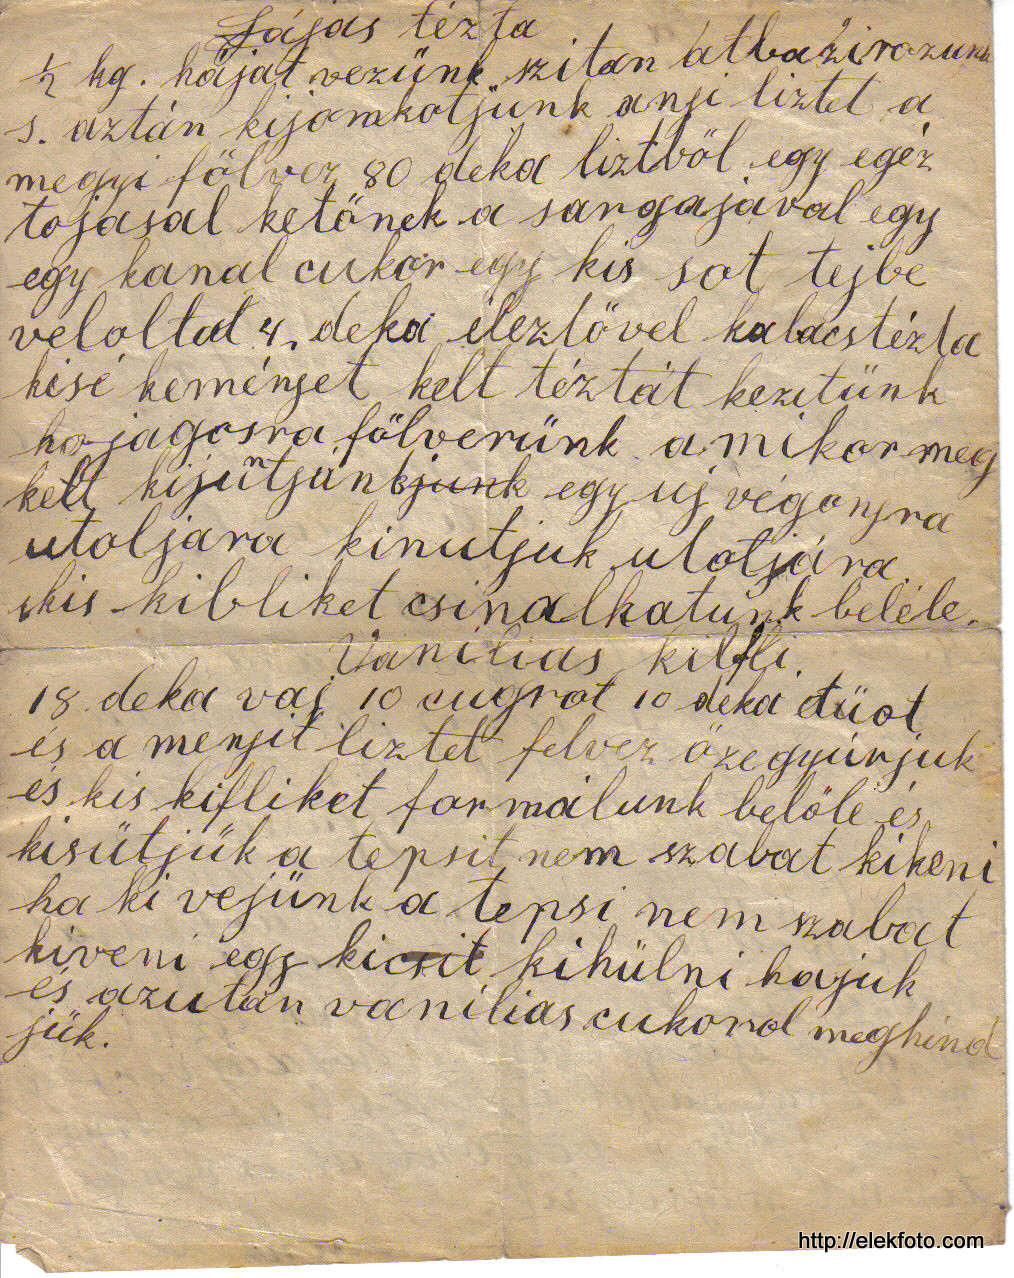 Hájas tézta
½ kg. hájat vezünk szitan átbazirozunk
s. aztán kijomkotjunk anyi liztet a
megyi fölvez 80 deka liztböl egy egéz
tojasal ketönek a sargajaval egy
egy kanal cukor egy kis sot tejbe
veloltat 4. deka éleztövel kalacstézta
kisé keményet kelt téztát kezitünk
hojagosra fölverünk amikor meg
kelt kijuntjánk egy uj végonyra
utoljara kinutjuk utotjára
kis kibliket csinalhatunk beléle.
Vanilias kilfli.
18 deka vaj 10 cugrot 10 deka düot
és a menjit liztet felvez özegyúrjuk
és kis kifliket formálunk belöle és
kisütjük a tepsit nem szabat kikeni
ha ki vejünk a tepsi nem szabat
kiveni egy kicsit kihülni hajuk
és azután vanilias cukorol meghind
jük.
http://elekfoto.com